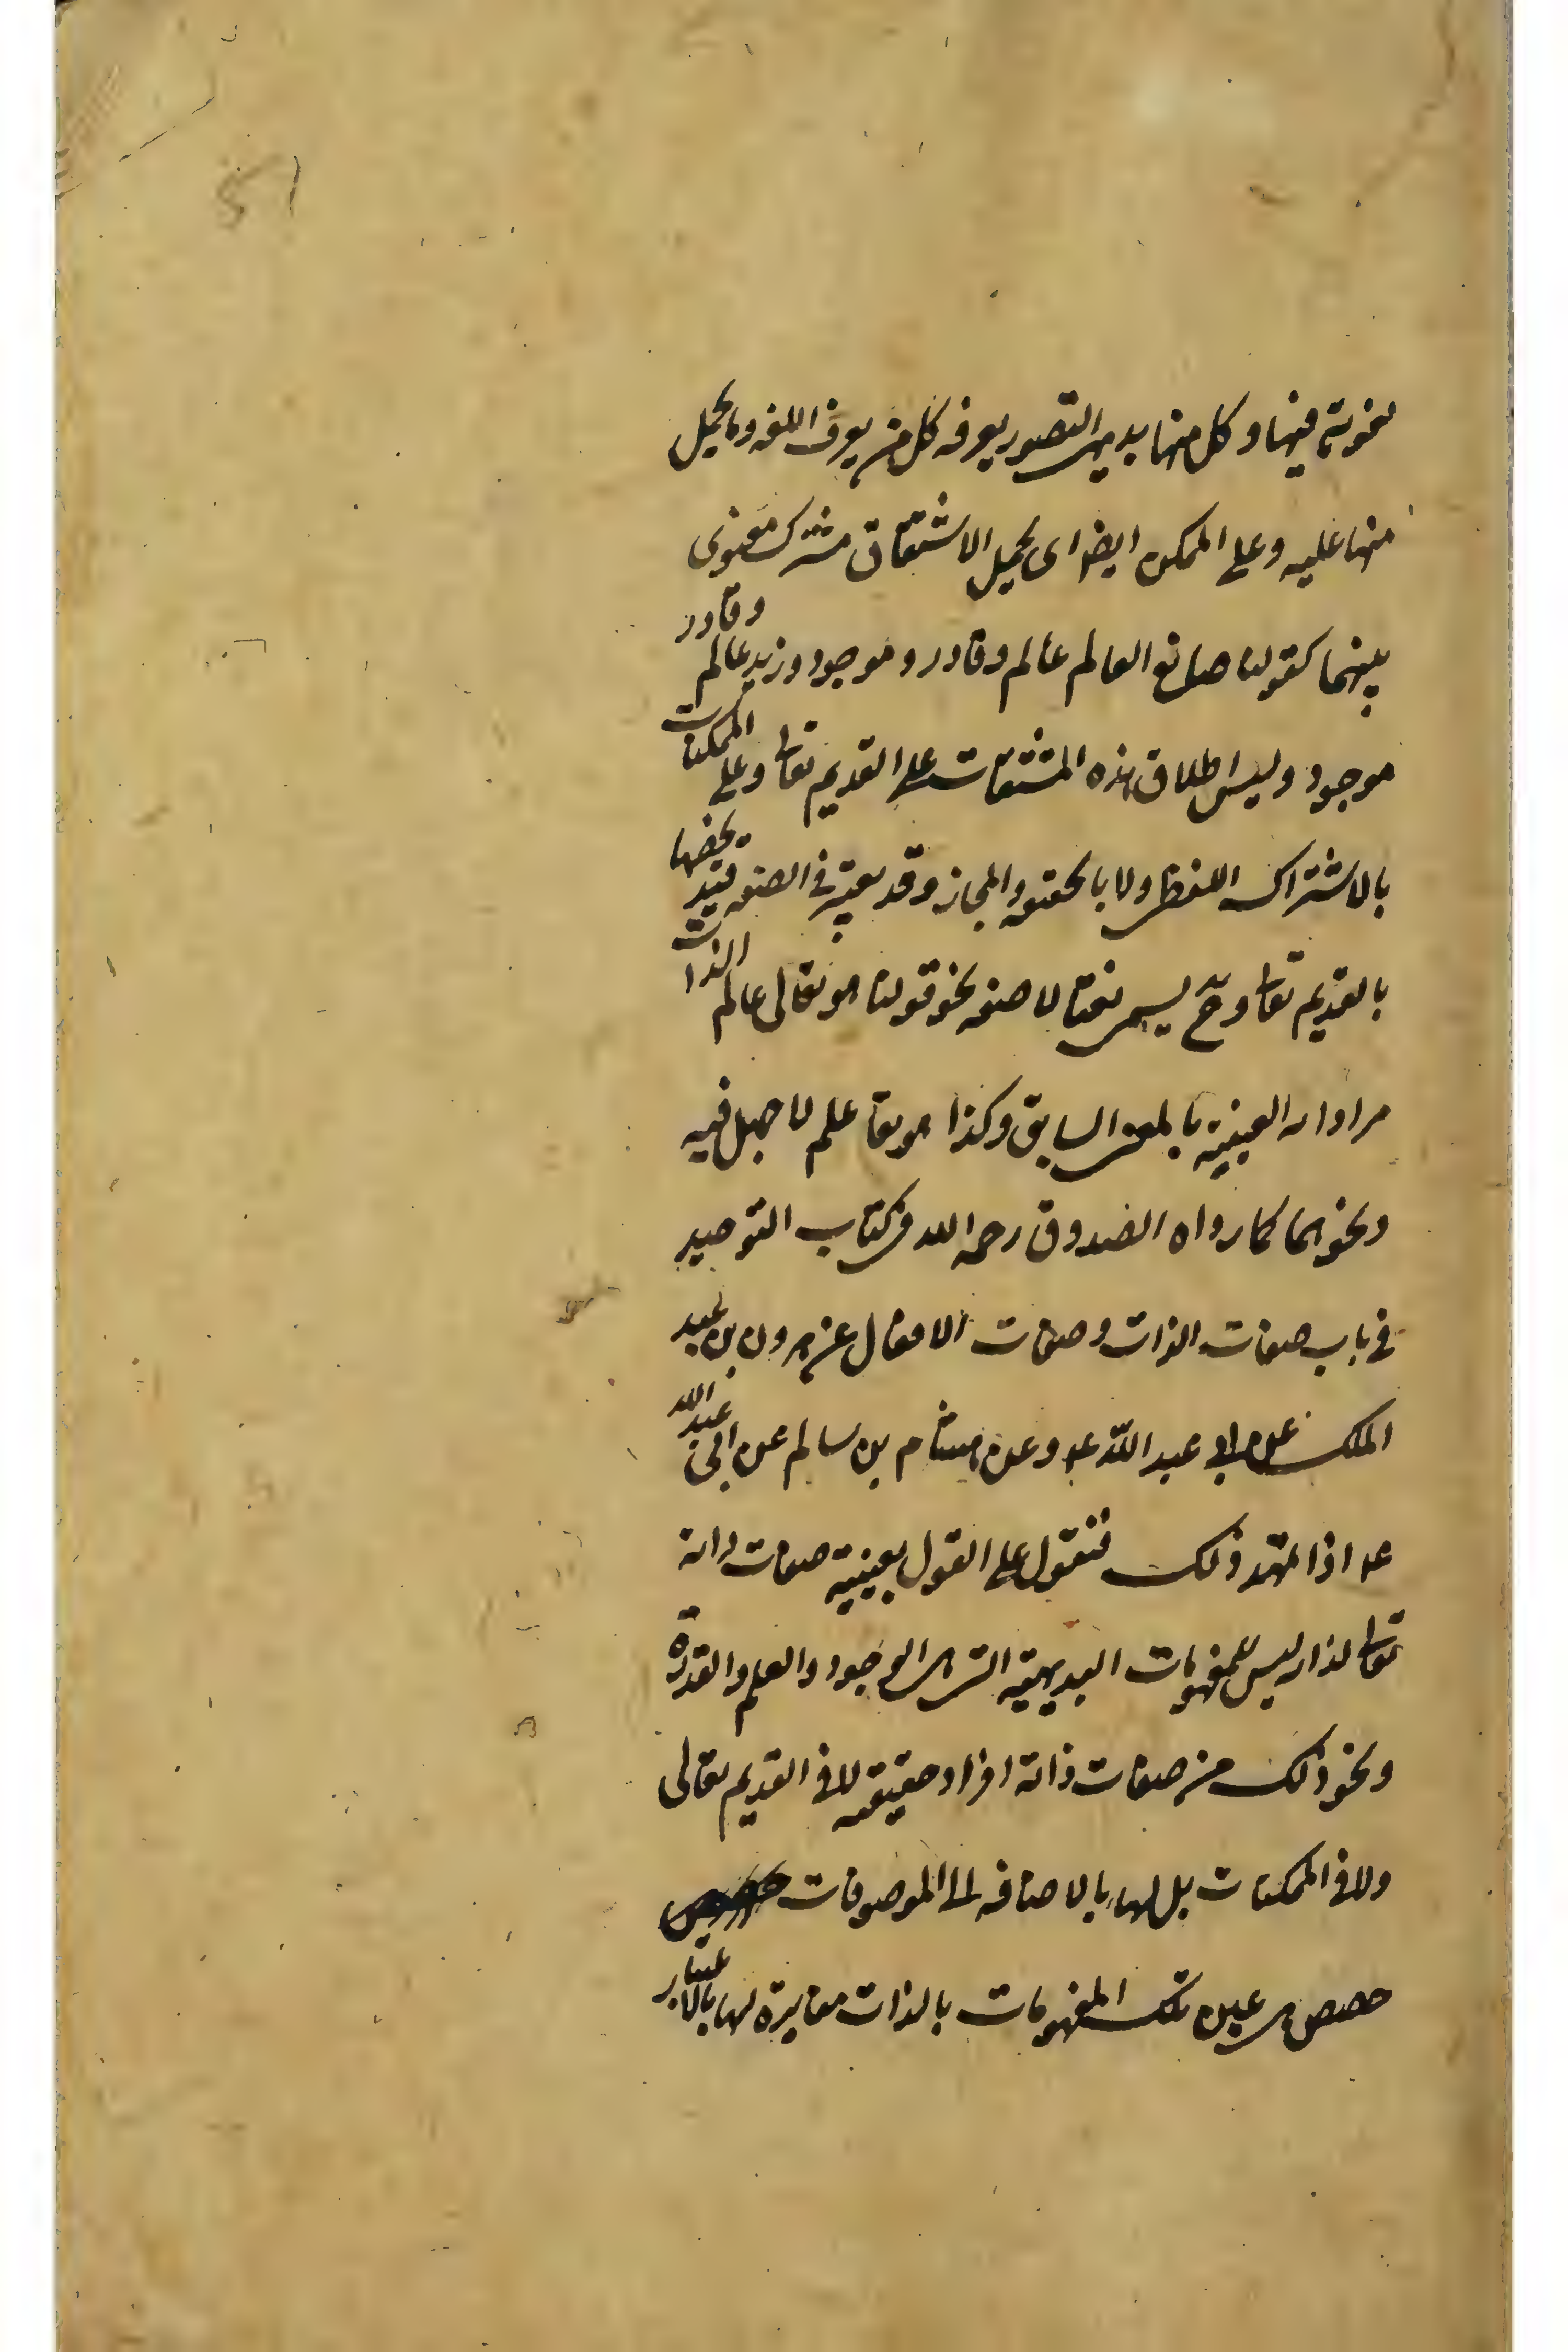 51
لغوية فيها وكل منها بديهي التصور يعرفه كل من يعرف اللغه وما يحمل
منها عليه وعلى الممكن ايضا اى بحمل الاشتقاق مشترك معنوى
بينهما كقولنا صانع العالم عالم وقادر وموجود وزيد عالم وقادر
موجود وليس اطلاق هذه المشتقات على القديم تعا وعلى الممكنات
بالاشتراك اللفظى ولا بالحقيقه والمجاز وقد يعتبر فى الصفه قيد يخصها
بالقديم تعا وح يسمى نعتا لا صفه نحو قولنا هو تعالى عالم الذات
مرادا به العينية بالمعنى السابق وكذا هو تعا علم لا جهل فيه
ونحوهما كما رواه الصدوق رحمه الله فى كتاب التوحيد
فى باب صفات الذات وصفات الافعال عن هرون بن عبد
الملك عن ابى عبد الله عم وعن هشام بن سالم عن ابى عبد الله
عم اذا تمهد ذلك فنقول على القول بعينية صفات ذاته
تعا لذاته ليس للمفهومات البديهية التى هى الوجود والعلم والقدرة
ونحو ذلك من صفات ذاته افراد حقيقيه لا فى القديم تعالى
ولا فى الممكنات بل لها بالاضافه الى الموصوفات
حصص هى عين تلك المفهومات بالذات مغايرة لها بالاعتبار